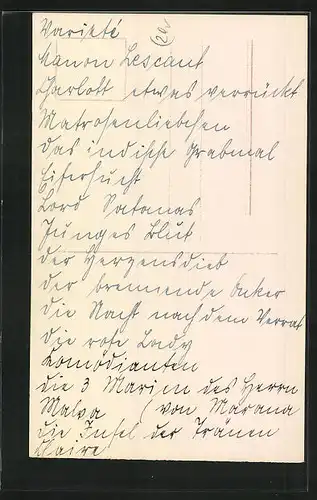 Varieté
(20)
Manon Lescaut
Charlott etwas verrückt
Matrosenliebchen
das indische Grabmal
Eifersucht
Lord Satanas
Junges Blut
der Herzensdieb
der brennende Acker
die Nacht nach dem Verrat
die rote Lady
Komödianten
die 3 Marien des Herrn
Malva ( von Marana
die Insel der Tränen
Claire